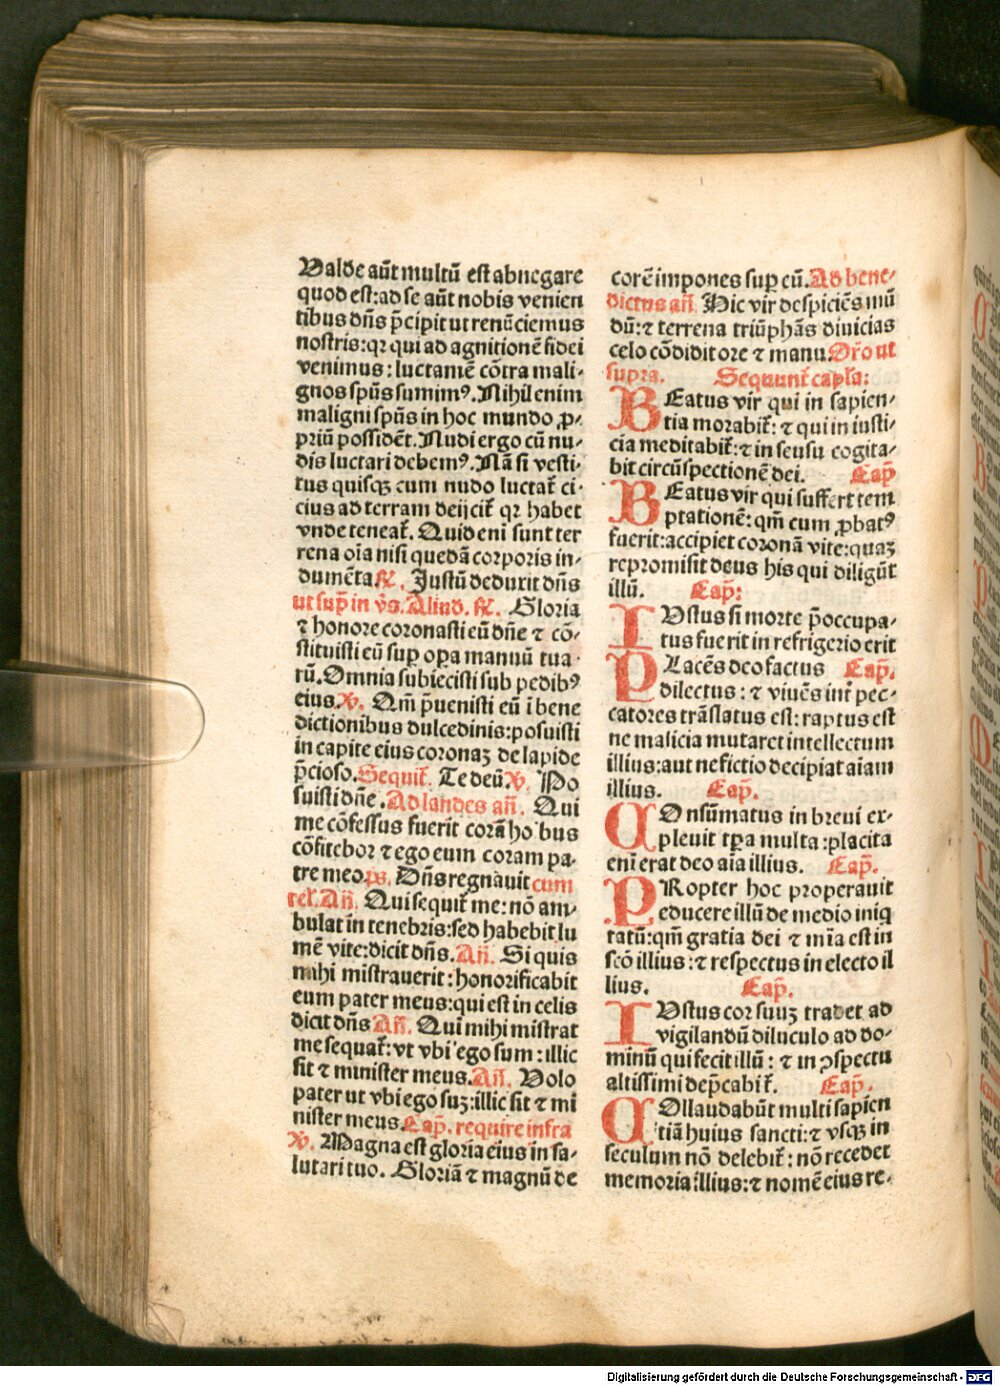 Valde aūt multū est abnegare
quod est:ad se aūt nobis venien
tibus dn̄s p̄cipit ut renūciemus
nostris:qꝛ qui ad agnitionē fidei
venimus:luctamē cōtra mali-
gnos spūs sumimꝰ.Nihil enim
maligni spūs in hoc mundo ꝓ-
priū possidēt.Nudi ergo cū nu-
dis luctari debemꝰ.Nā si vesti-
tus quisqꝫ cum nudo luctat̄ ci-
cius ad terram deijcit̄ qꝛ habet
vnde teneat̄. Quid eni sunt ter
rena oīa nisi quedā corporis in-
dumēta.℟. Justū deduxit dn̄s
ut sup̄ in v̄s.Aliud.℟. Gloria
⁊ honore coronasti eū dn̄e ⁊ cō-
stituisti eū suꝑ oꝑa manuū tua
rū.Omnia subiecisti sub pedibꝰ
eius.℣. Qm̄ p̄uenisti eū i bene
dictionibus dulcedinis:posuisti
in capite eius coronaꝫ de lapide
p̄cioso.Sequit̄. Te deū.℣. Po
suisti dn̄e.Ad laudes an̄. Qui
me cōfessus fuerit corā ho bus
cōfitebor ⁊ ego eum coram pa-
tre meo.ps. Dn̄s regnavit cum
rel̄.An̄. Qui sequit̄ me:nō am-
bulat in tenebris:sed habebit lu
mē vite:dicit dn̄s.An̄. Si quis
mihi mistraverit:honorificabit
eum pater meus:qui est in celis
dicit dn̄s An̄. Qui mihi mistrat
me sequat̄:vt vbi ego sum:illic
sit ⁊ minister meus.An̄. Volo
pater ut vbi ego suꝫ:illic sit ⁊ mi
nister meus.Cap̄.require infra
℣. Magna est gloria eius in sa-
lutari tuo. Gloriā ⁊ magnū de
corē impones suꝑ eū.Ad bene-
dictus an̄. Hic vir despiciēs mū
dū:⁊ terrena triūphās divicias
celo cōdidit ore ⁊ manu.Or̄o ut
supra. Sequunt̄ capl̄a:
BEatus vir qui in sapien-
tia morabit̄:⁊ qui in iusti-
cia meditabit̄:⁊ in sensu cogita-
bit circūspectionē dei. Cap̄
BEatus vir qui suffert tem
ptationē:qm̄ cum ꝓbatꝰ
fuerit:accipiet coronā vite:quaꝫ
repromisit deus his qui diligūt
illū. Cap̄:
IVstus si morte p̄occupa-
tus fuerit in refrigerio erit
PLacēs deo factus Cap̄.
dilectus:⁊ vivēs int̄ pec-
catores trāslatus est:raptus est
ne malicia mutaret intellectum
illius:aut ne fictio decipiat aīam
illius. Cap̄.
COnsūmatus in brevi ex-
plevit tꝑa multa:placita
eni erat deo aīa illius. Cap̄.
PRopter hoc properavit
educere illū de medio iniq
tatū:qm̄ gratia dei ⁊ mīa est in
scō illius:⁊ respectus in electo il
lius. Cap̄.
IVstus cor suuꝫ tradet ad
vigilandū diluculo ad do-
minū qui fecit illū:⁊ in ꝯspectu
altissimi dep̄cabit̄. Cap̄.
COllaudabūt multi sapien
tiā huius sancti:⁊ vsqꝫ in
seculum nō delebit̄:nō recedet
memoria illius:⁊ nomē eius re-
Digitalisierung gefördert durch die Deutsche Forschungsgemeinschaft - DFG